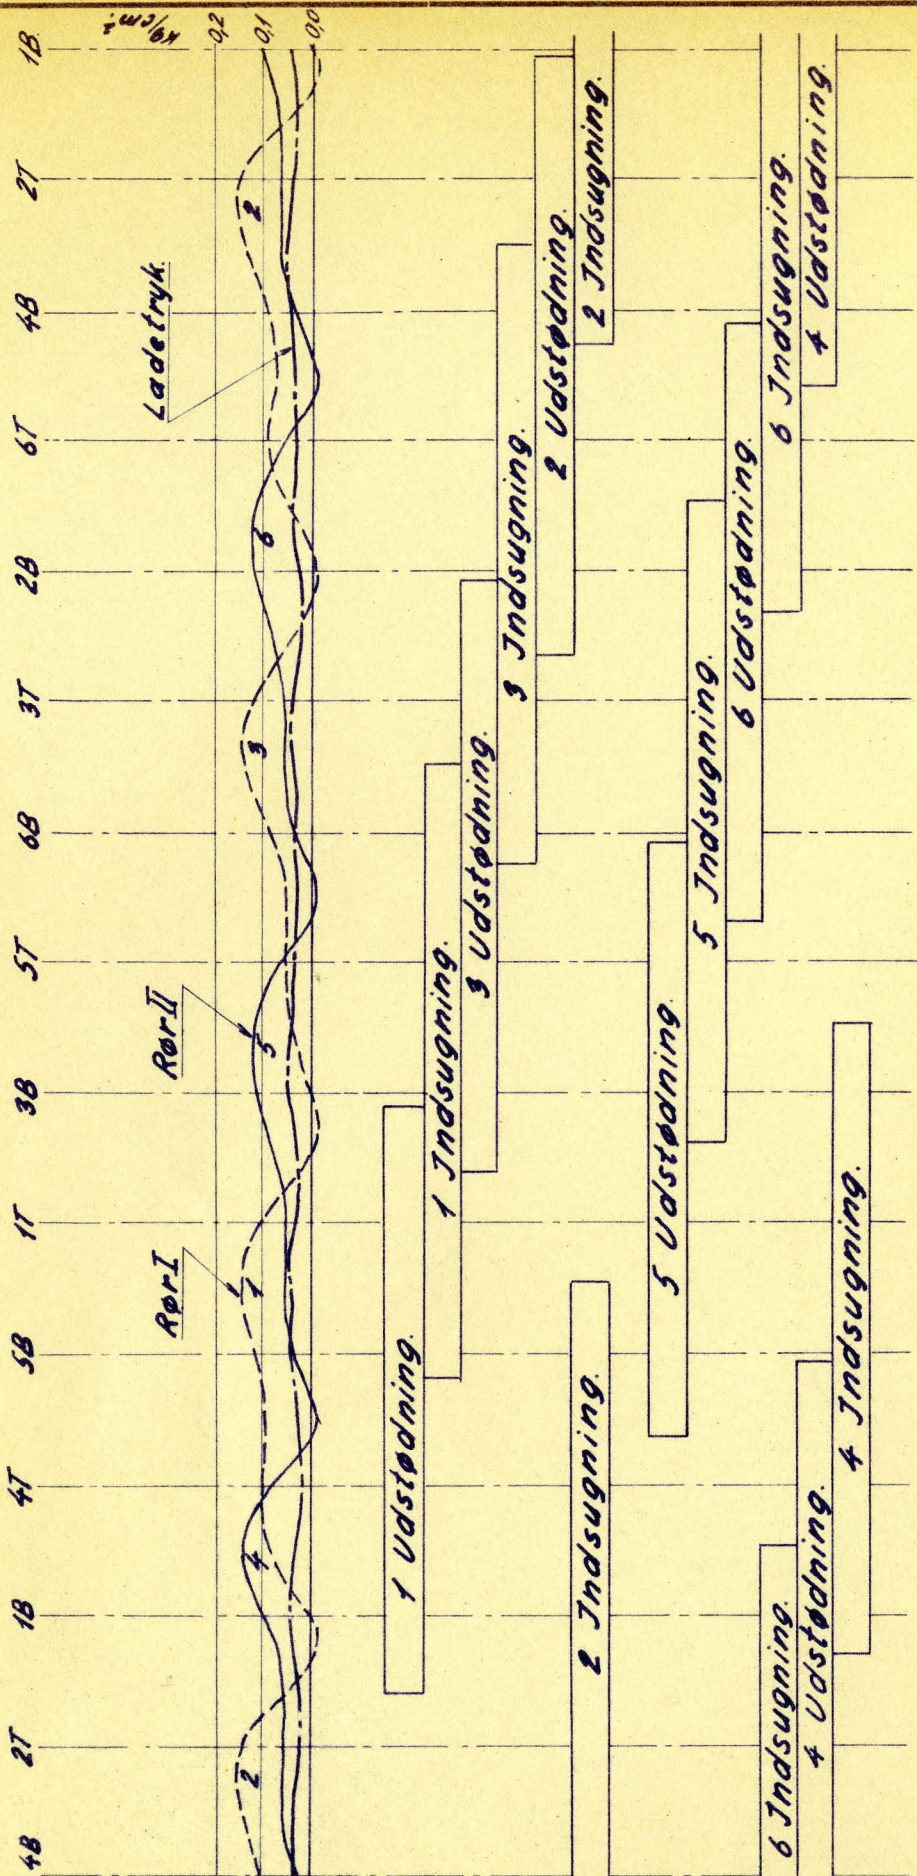 4B 2T 1B 4T 5B 1T 3B 5T 6B 3T 2B 6T 4B 2T 1B
kg/cm²
0,2
0,1
0,0
Rør I
Rør II
Ladetryk.
2 4 1 5 3 6 2
1 Udstødning.
1 Indsugning.
3 Udstødning.
3 Indsugning.
2 Udstødning.
2 Indsugning.
2 Indsugning.
5 Udstødning
5 Indsugning.
6 Udstødning.
6 Indsugning.
6 Indsugning.
4 Udstødning.
4 Udstødning.
4 Indsugning.